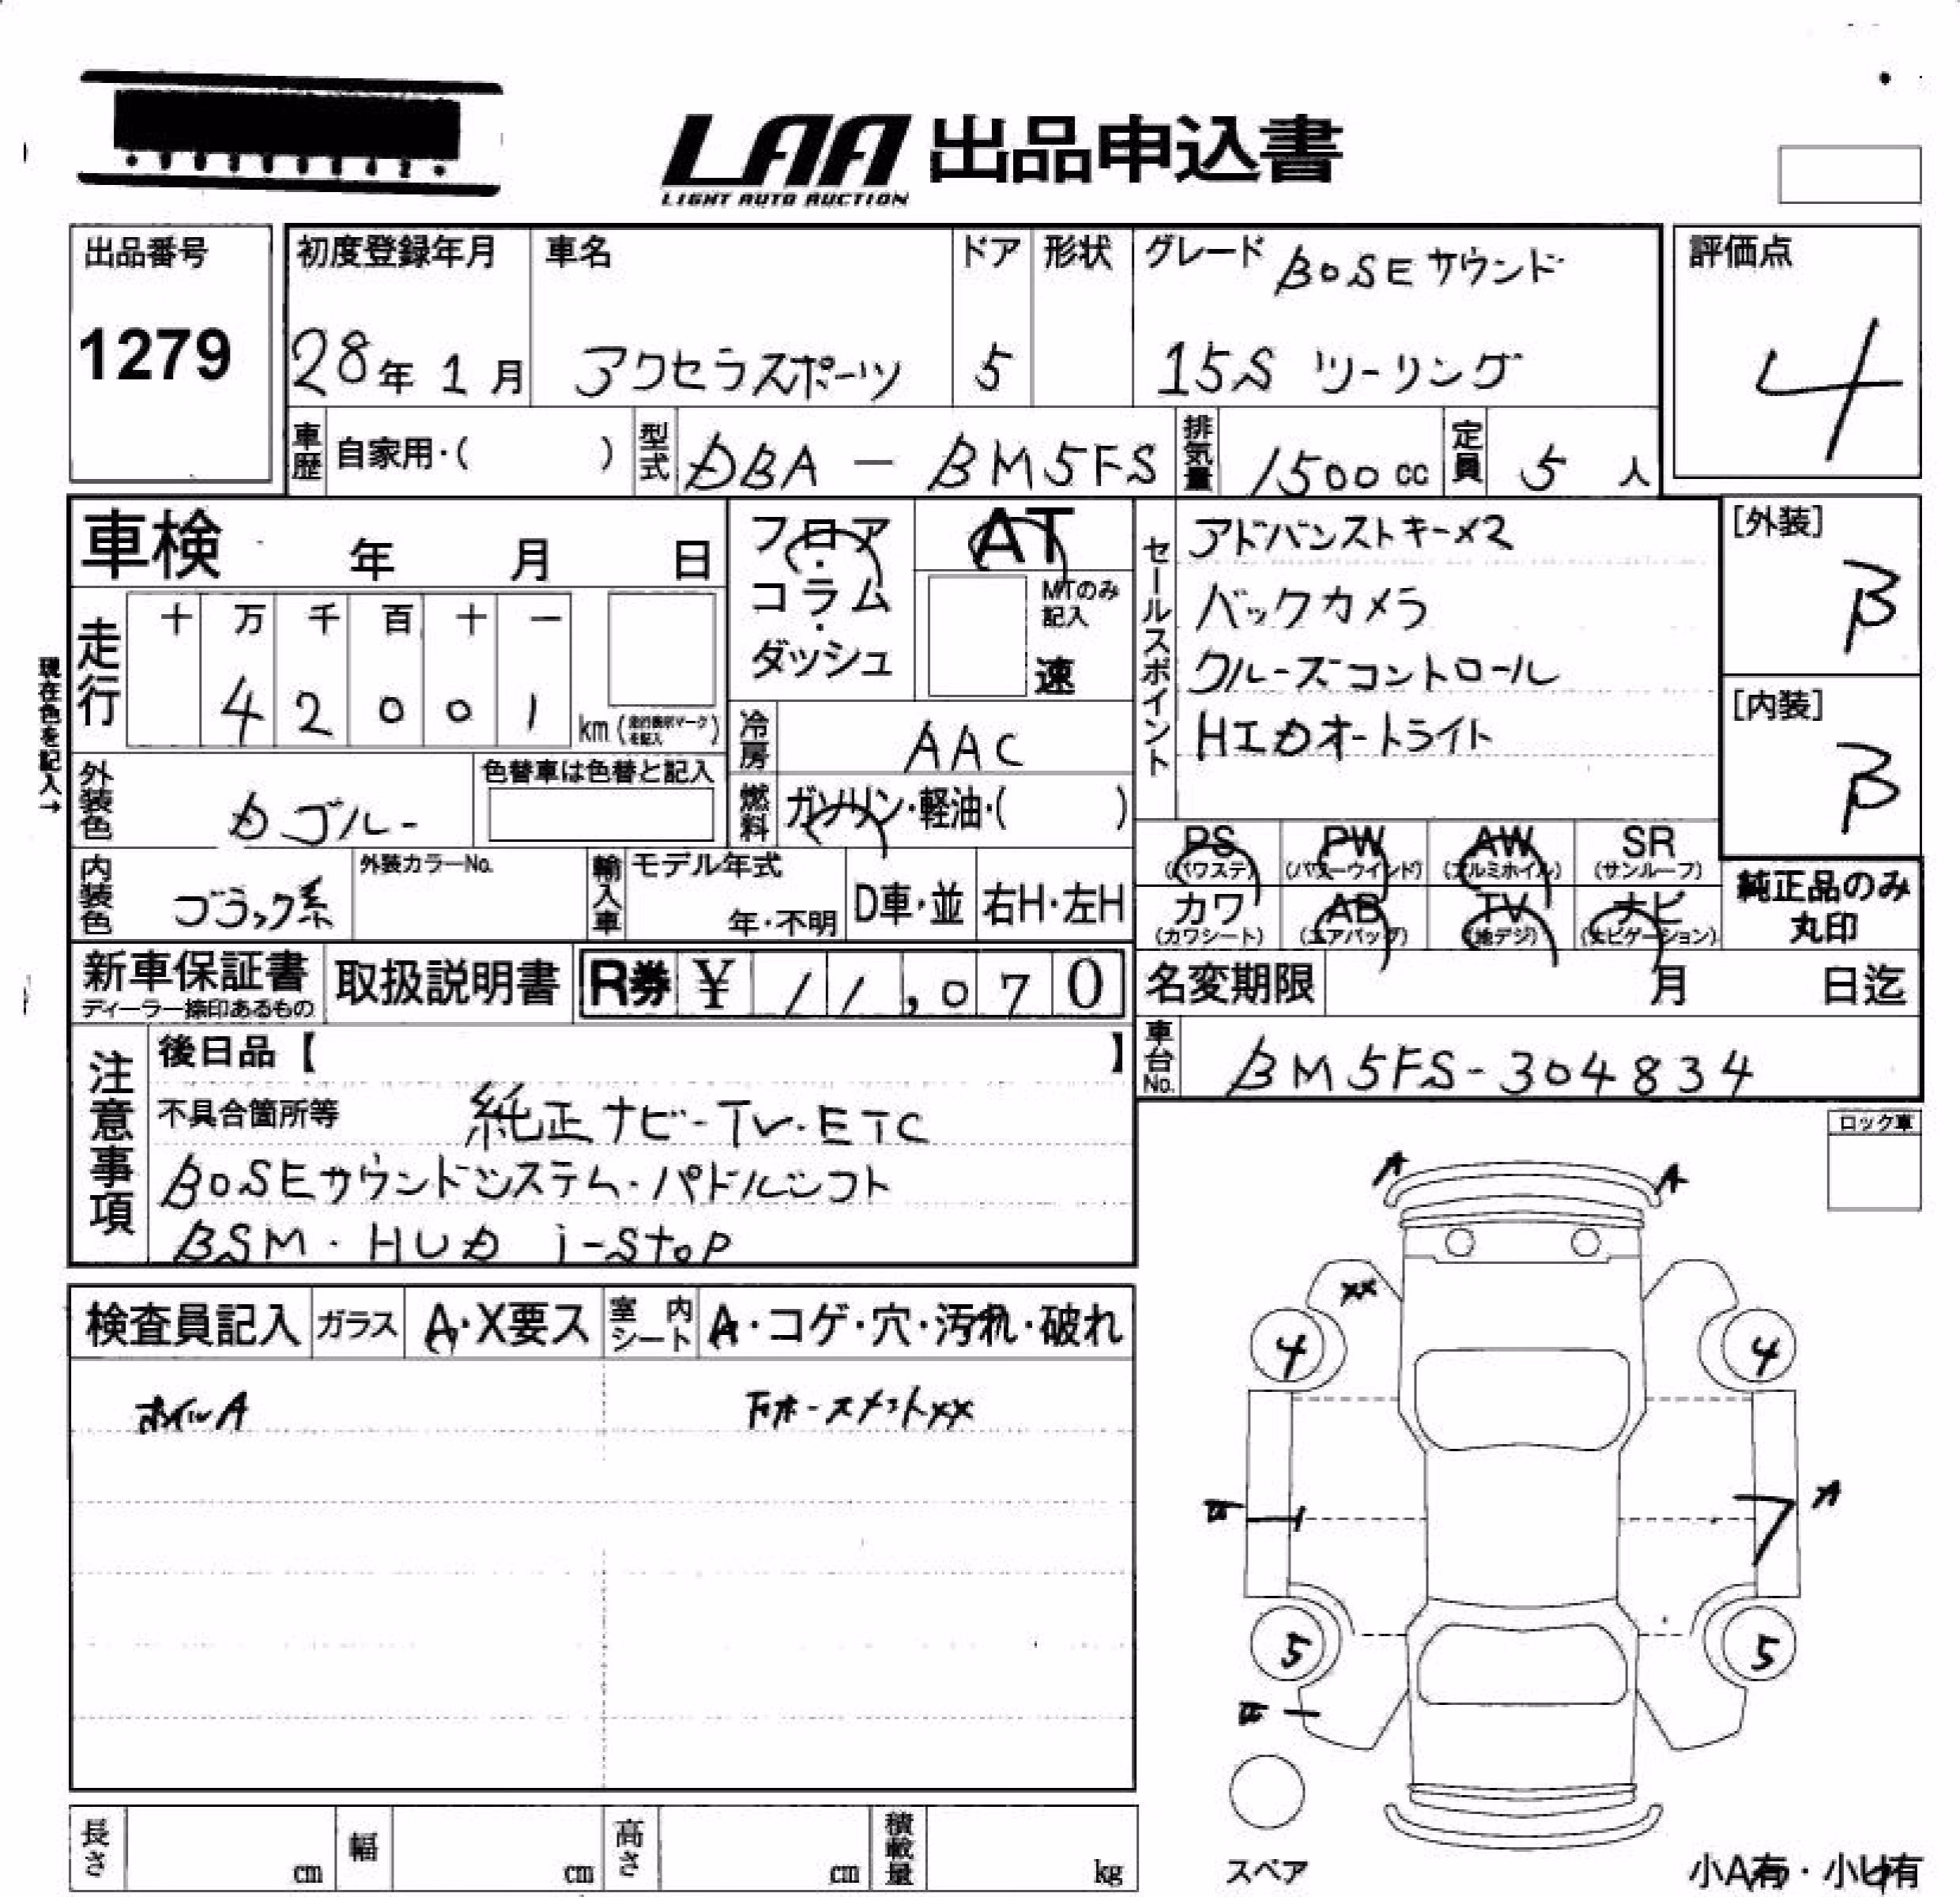 LAA 出品申込書
LIGHT AUTO AUCTION
出品番号
1279
初度登録年月
28年 1月
車名
アクセラスポーツ
ドア
5
形状
グレード BOSEサウンド
15S ツーリング
評価点
4
車歴 自家用・( )
型式 DBA - BM5FS
排気量 1500cc
定員 5 人
車検 年 月 日
フロア・コラム・ダッシュ
AT
MTのみ記入
速
セールスポイント
アドバンストキー×2
バックカメラ
クルーズコントロール
HIDオートライト
[外装]
B
[内装]
B
現在色を記入→
走行
十 万 千 百 十 一
4 2 0 0 1
km (走行表示マークを記入)
冷房 AAC
外装色 Dブルー
色替車は色替と記入
燃料 ガソリン・軽油・( )
PS (パワステ)
PW (パワーウインド)
AW (アルミホイル)
SR (サンルーフ)
内装色 ブラック系
外装カラーNo.
輸入車
モデル年式
年・不明
D車・並
右H・左H
カワ (カワシート)
AB (エアバッグ)
TV (地デジ)
ナビ (ナビゲーション)
純正品のみ
丸印
新車保証書
ディーラー捺印あるもの
取扱説明書
R券 ¥ 11,070
名変期限 月 日迄
車台No. BM5FS-304834
注意事項
後日品【 】
不具合箇所等 純正ナビ-TV・ETC
BOSEサウンドシステム・パドルシフト
BSM・HUD i-stop
ロック車
検査員記入
ガラス A・X要ス
室内シート A・コゲ・穴・汚れ・破れ
ホイルA
A A
XX
4 4
A
5 5
長さ cm
幅 cm
高さ cm
積載量 kg
スペア
小A有・小U有